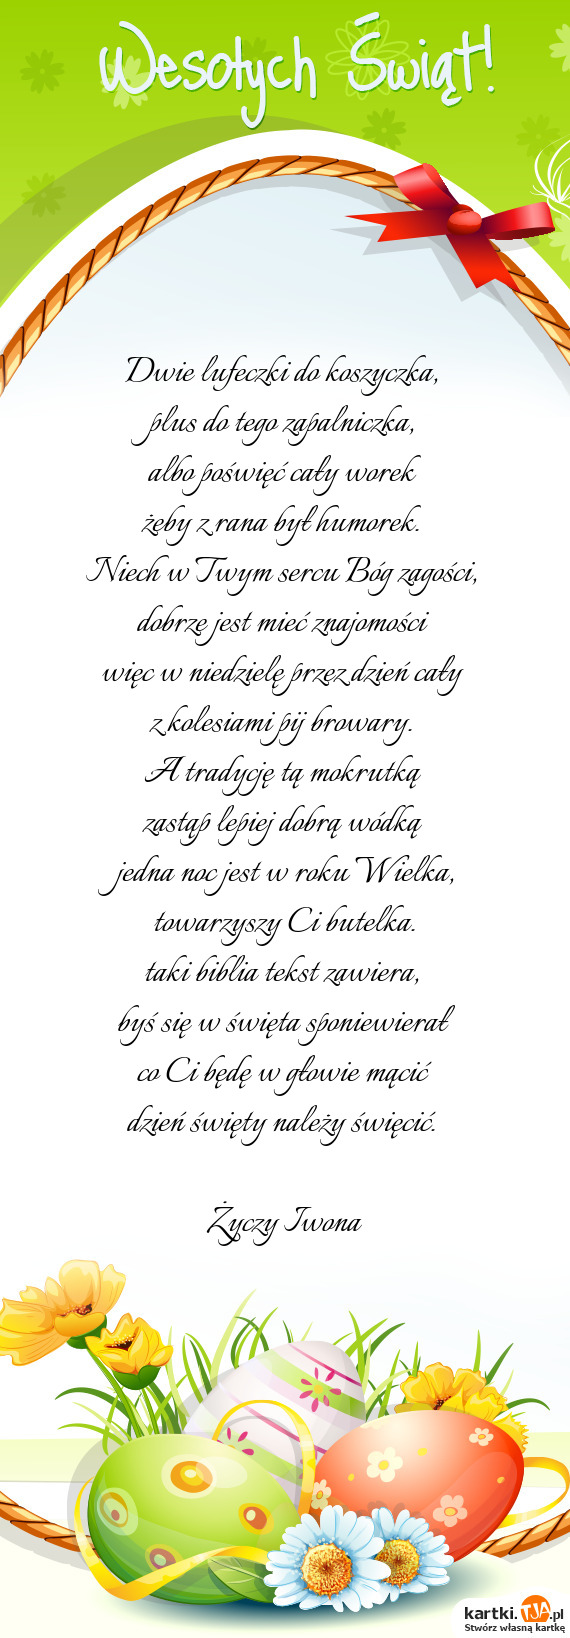 Wesołych Świąt!
Dwie lufeczki do koszyczka,
plus do tego zapalniczka,
albo poświęć cały worek
żeby z rana był humorek.
Niech w Twym sercu Bóg zagości,
dobrze jest mieć znajomości
więc w niedzielę przez dzień cały
z kolesiami pij browary.
A tradycję tą mokrutką
zastąp lepiej dobrą wódką
jedna noc jest w roku Wielka,
towarzyszy Ci butelka.
taki biblia tekst zawiera,
byś się w święta sponiewierał
co Ci będę w głowie mącić
dzień święty należy święcić.
Życzy Iwona
kartki.TJA.pl
Stwórz własną kartkę